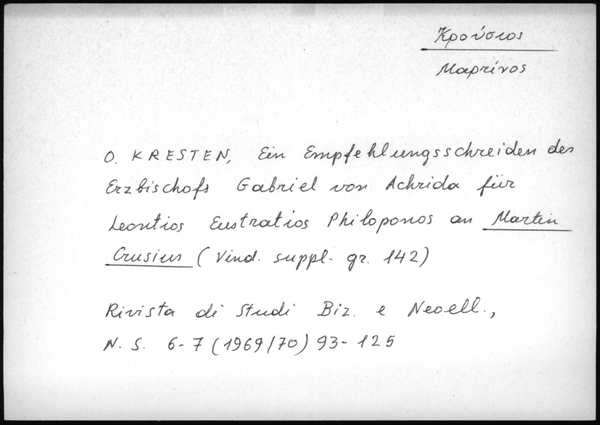 Κρούσιος
Μαρτίνος
O. KRESTEN, Ein Empfehlungsschreiden des
Erzbischofs Gabriel von Achrida für
Leontios Eustratios Philoponos an Martin
Crusius (Vind. suppl. gr. 142)
Rivista di Studi Biz. e Neoell.,
N. S. 6-7 (1969/70) 93-125